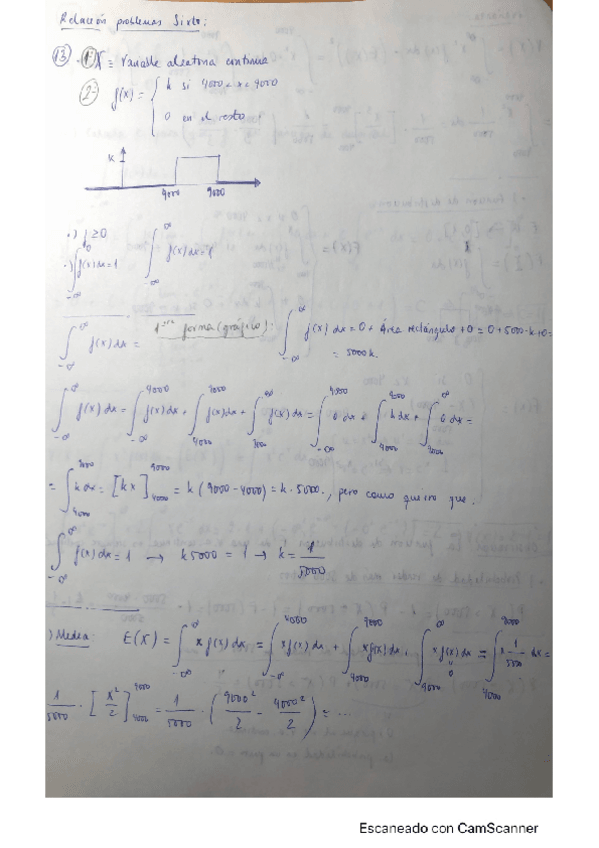 Relación problemas Sixto:
13 1º X ≡ Variable aleatoria continua
2º f(x) = { k si 4000 < x < 9000
0 en el resto
k
4000 9000
·) f ≥ 0
·) ∫_{-∞}^{∞} f(x) dx = 1 ∫_{-∞}^{∞} f(x) dx = 1
∫_{-∞}^{∞} f(x) dx = 1ª forma (gráfico): ∫_{-∞}^{∞} f(x) dx = 0 + Área rectángulo + 0 = 0 + 5000·k + 0 =
= 5000k.
∫_{-∞}^{∞} f(x) dx = ∫_{-∞}^{4000} f(x) dx + ∫_{4000}^{9000} f(x) dx + ∫_{9000}^{∞} f(x) dx = ∫_{-∞}^{4000} 0 dx + ∫_{4000}^{9000} k dx + ∫_{9000}^{∞} 0 dx =
= ∫_{4000}^{9000} k dx = [kx]_{4000}^{9000} = k (9000 - 4000) = k · 5000, pero como quiero que
∫_{-∞}^{∞} f(x) dx = 1 → k 5000 = 1 → k = 1/5000
) Media: E(X) = ∫_{-∞}^{∞} x f(x) dx = ∫_{-∞}^{4000} x f(x) dx + ∫_{4000}^{9000} x f(x) dx + ∫_{9000}^{∞} x f(x) dx = ∫_{4000}^{9000} x 1/5000 dx =
0
1/5000 · [x²/2]_{4000}^{9000} = 1/5000 · (9000²/2 - 4000²/2) = ...
Escaneado con CamScanner